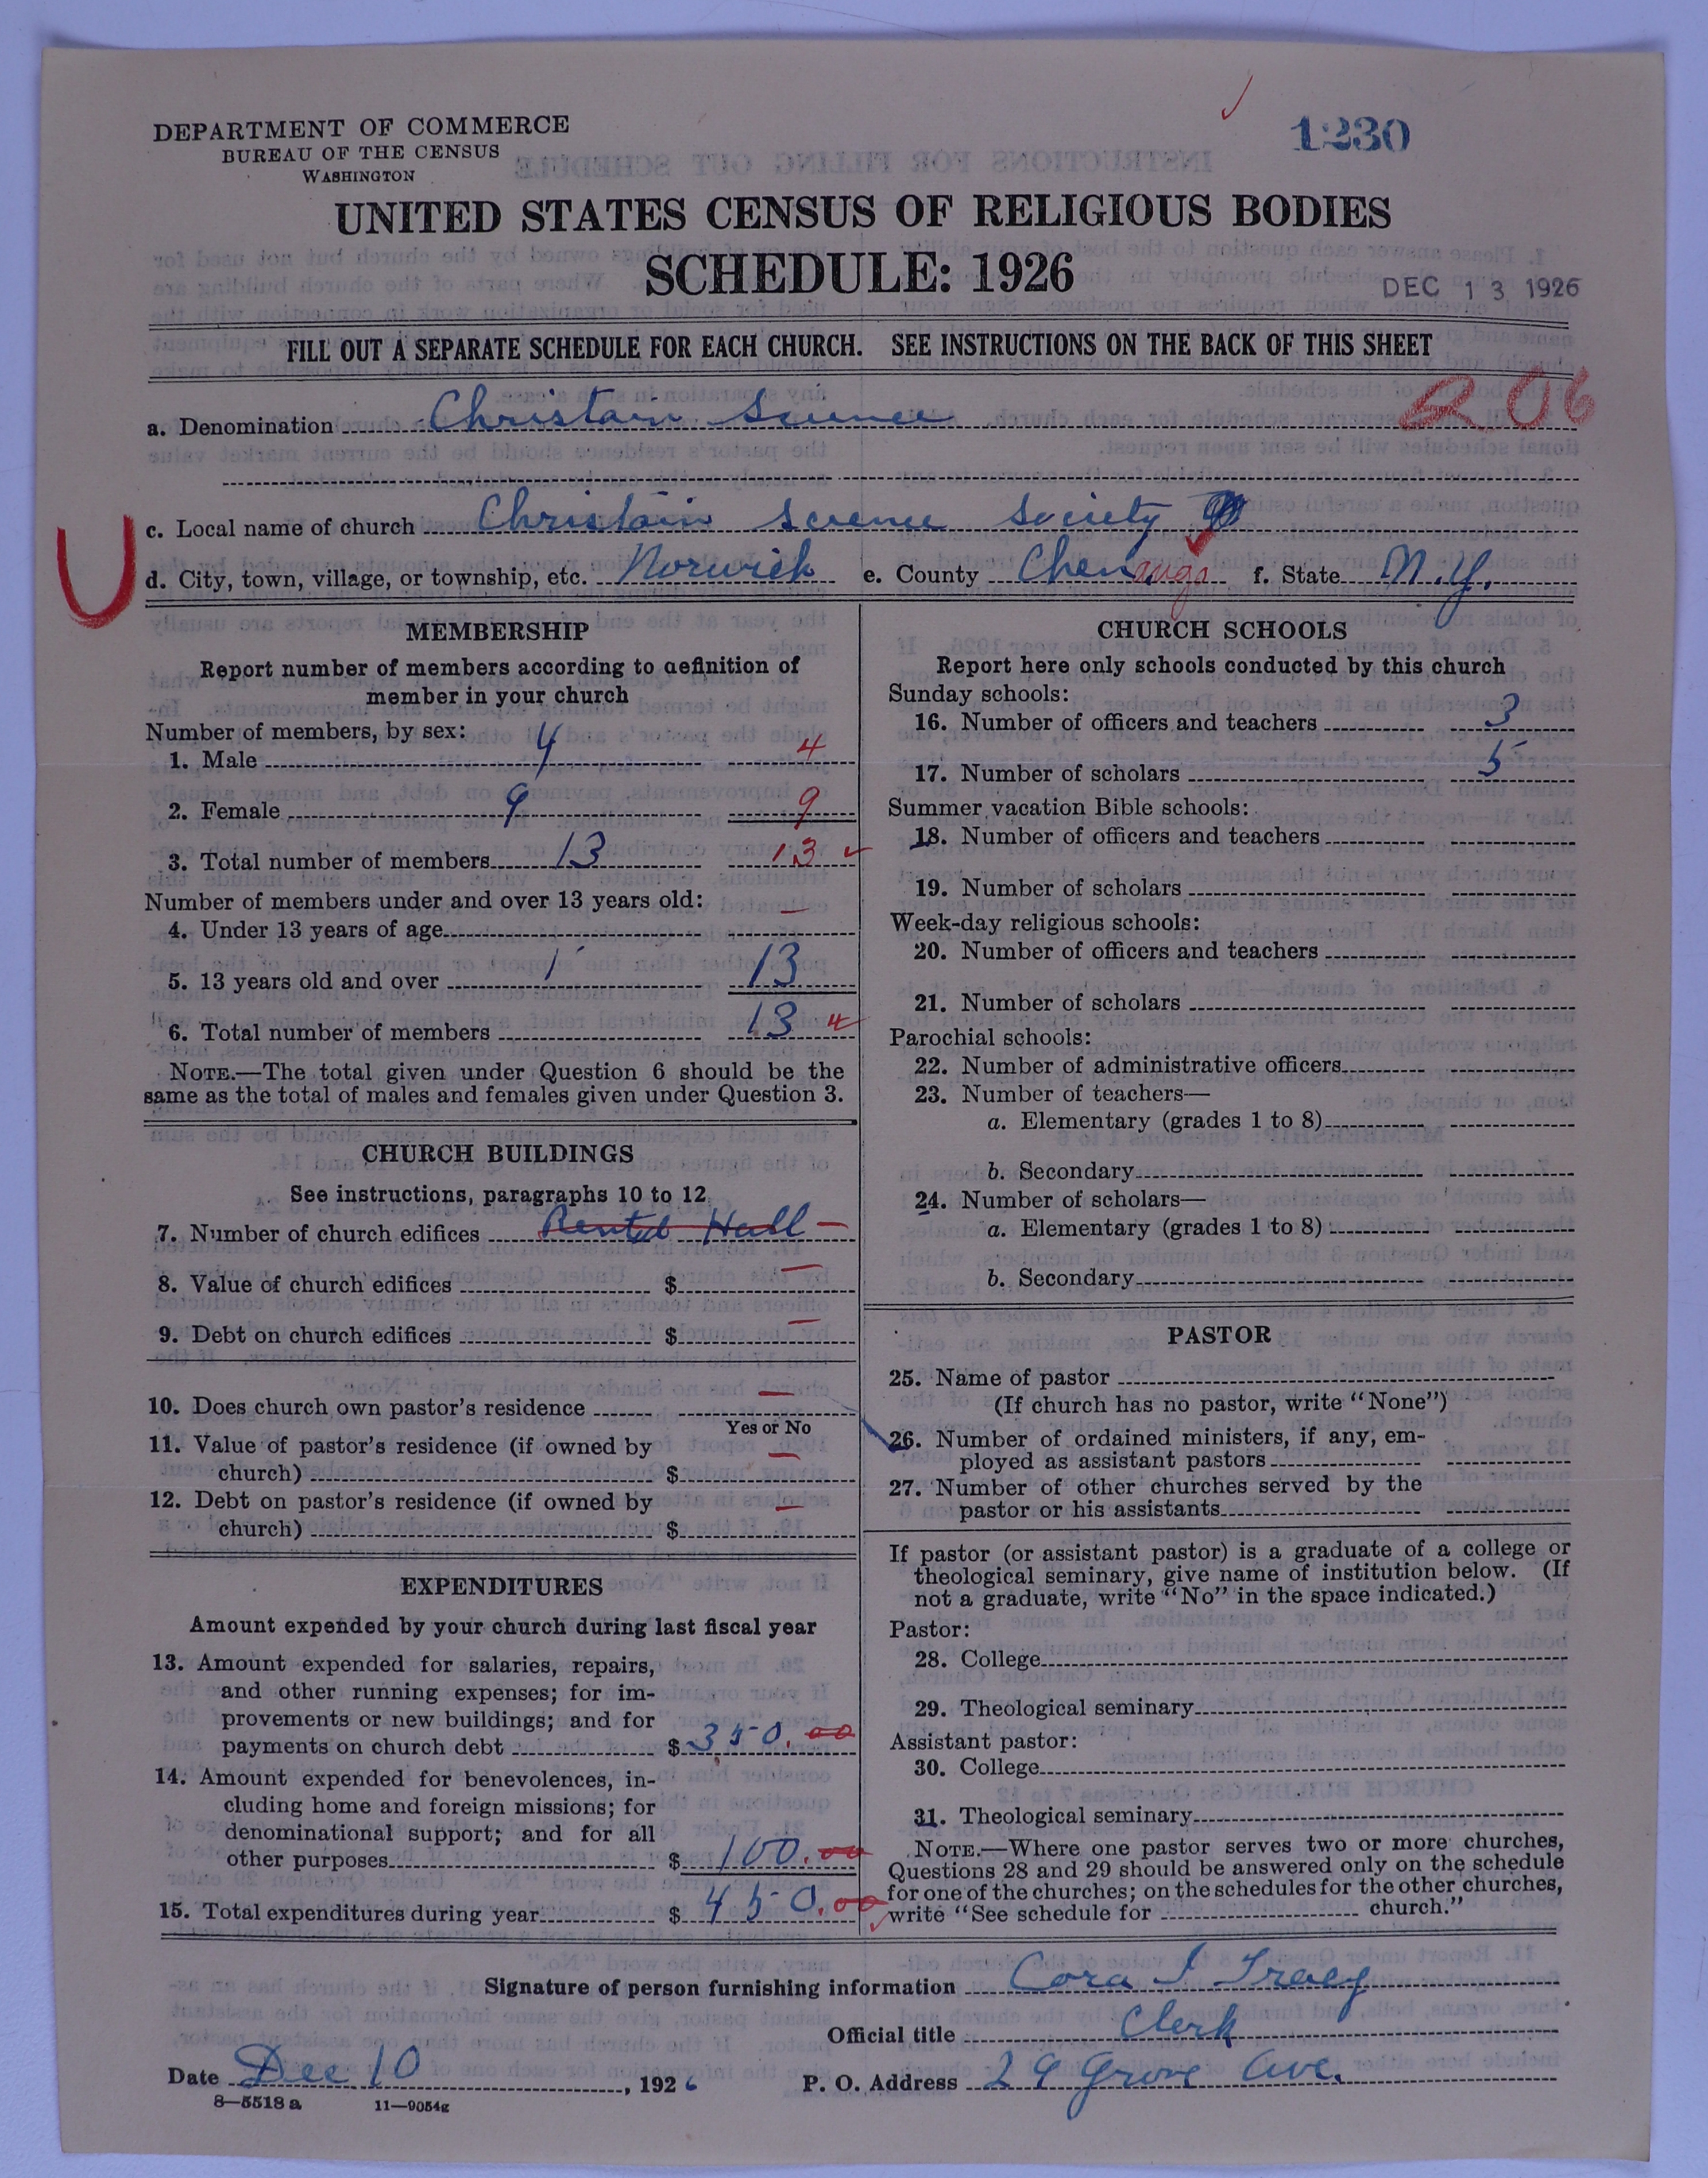 DEPARTMENT OF COMMERCE
BUREAU OF THE CENSUS
WASHINGTON
1230
UNITED STATES CENSUS OF RELIGIOUS BODIES
SCHEDULE: 1926
DEC 13 1926
FILL OUT A SEPARATE SCHEDULE FOR EACH CHURCH. SEE INSTRUCTIONS ON THE BACK OF THIS SHEET
206
a. Denomination Christain Science
c. Local name of church Christain Science Society
U
d. City, town, village, or township, etc. Norwich e. County Chenango f. State N.Y.
MEMBERSHIP
Report number of members according to definition of
member in your church
Number of members, by sex:
1. Male 4 4
2. Female 9 9
3. Total number of members 13 13
Number of members under and over 13 years old:
4. Under 13 years of age —
5. 13 years old and over 1 13
6. Total number of members 13
NOTE.—The total given under Question 6 should be the
same as the total of males and females given under Question 3.
CHURCH BUILDINGS
See instructions, paragraphs 10 to 12
7. Number of church edifices Rented Hall —
8. Value of church edifices $ —
9. Debt on church edifices $ —
10. Does church own pastor's residence —
Yes or No
11. Value of pastor's residence (if owned by
church) $ —
12. Debt on pastor's residence (if owned by
church) $ —
EXPENDITURES
Amount expended by your church during last fiscal year
13. Amount expended for salaries, repairs,
and other running expenses; for im-
provements or new buildings; and for
payments on church debt $ 350.00
14. Amount expended for benevolences, in-
cluding home and foreign missions; for
denominational support; and for all
other purposes $ 100.00
15. Total expenditures during year $ 450.00
CHURCH SCHOOLS
Report here only schools conducted by this church
Sunday schools:
16. Number of officers and teachers 3
17. Number of scholars 5
Summer vacation Bible schools:
18. Number of officers and teachers
19. Number of scholars
Week-day religious schools:
20. Number of officers and teachers
21. Number of scholars
Parochial schools:
22. Number of administrative officers
23. Number of teachers—
a. Elementary (grades 1 to 8)
b. Secondary
24. Number of scholars—
a. Elementary (grades 1 to 8)
b. Secondary
PASTOR
25. Name of pastor
(If church has no pastor, write "None")
26. Number of ordained ministers, if any, em-
ployed as assistant pastors
27. Number of other churches served by the
pastor or his assistants
If pastor (or assistant pastor) is a graduate of a college or
theological seminary, give name of institution below. (If
not a graduate, write "No" in the space indicated.)
Pastor:
28. College
29. Theological seminary
Assistant pastor:
30. College
31. Theological seminary
NOTE.—Where one pastor serves two or more churches,
Questions 28 and 29 should be answered only on the schedule
for one of the churches; on the schedules for the other churches,
write "See schedule for church."
Signature of person furnishing information Cora I Tracy
Official title Clerk
Date Dec 10, 1926 P. O. Address 29 Grove Ave.
8—5518 a 11—9054g